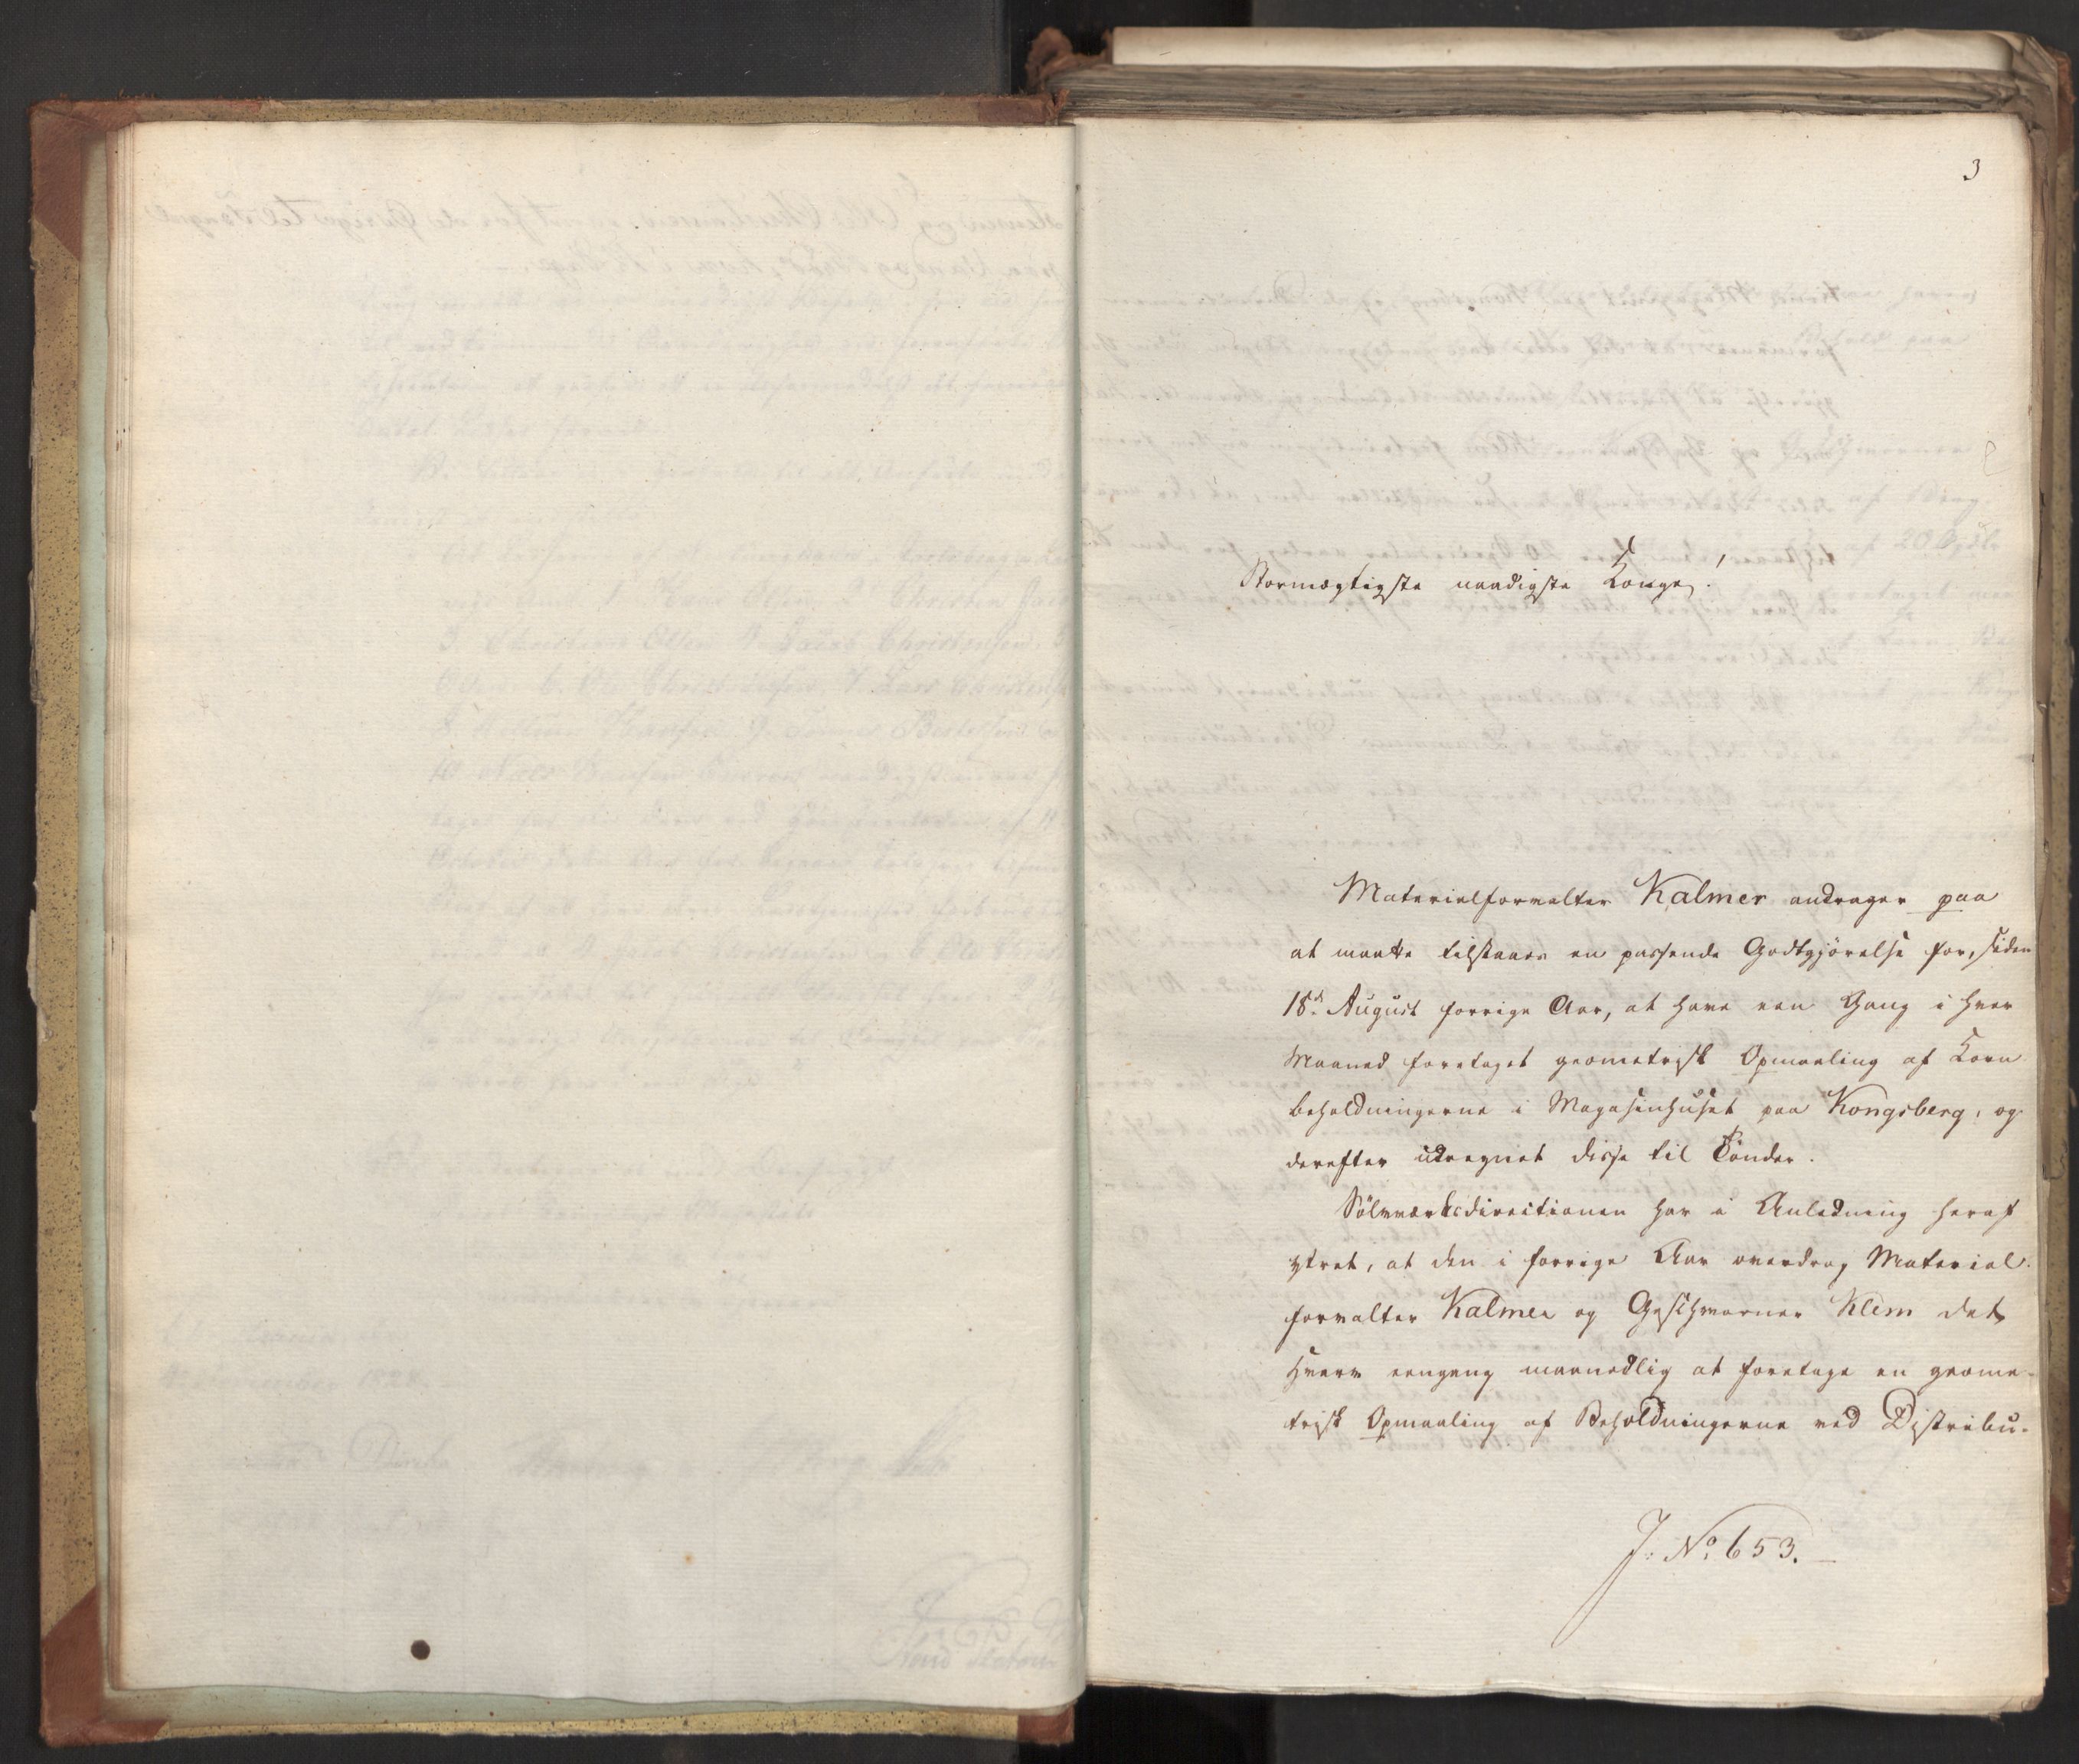 3
Stormægtigste naadigste Konge!
Materialforvalter Kalmer andrager paa
at maatte tilstaaes en passende Godtgjörelse for, siden
18de August forrige Aar, at have een Gang i hver
Maaned foretaget geometrisk Opmaaling af Korn
beholdningerne i Magasinhuset paa Kongsberg, og
derefter udregnet disse til Tönder.
Sölvværksdirectionen har i Anledning heraf
yttret, at den i forrige Aar overdrog Material-
forvalter Kalmer og Geschworner Klem det
Hverv eengang maanedlig at foretage en geome-
trisk Opmaaling af Beholdningerne ved Distribu-
J: No. 653.